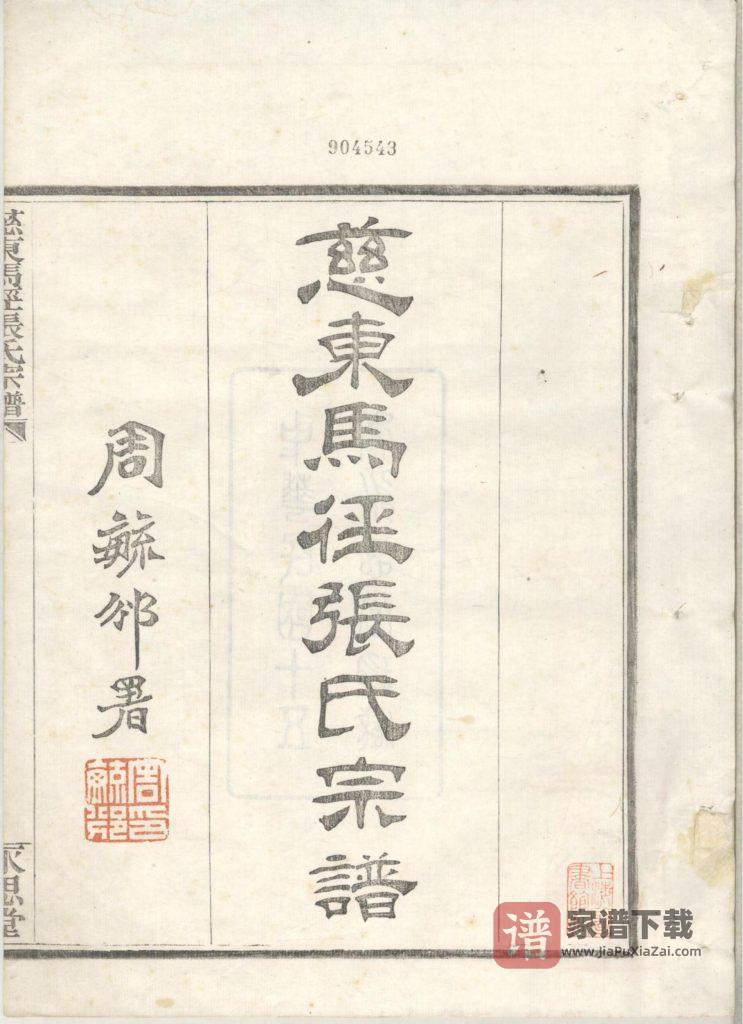 904543
慈東馬徑張氏宗譜
周毓邠署
慈東馬徑張氏宗譜
永思堂
谱
家谱下载
www.JiaPuXiaZai.com